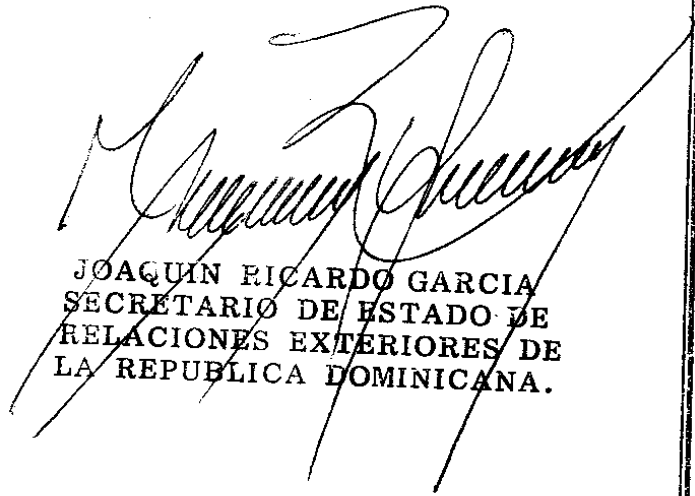 JOAQUIN RICARDO GARCIA
SECRETARIO DE ESTADO DE
RELACIONES EXTERIORES DE
LA REPUBLICA DOMINICANA.